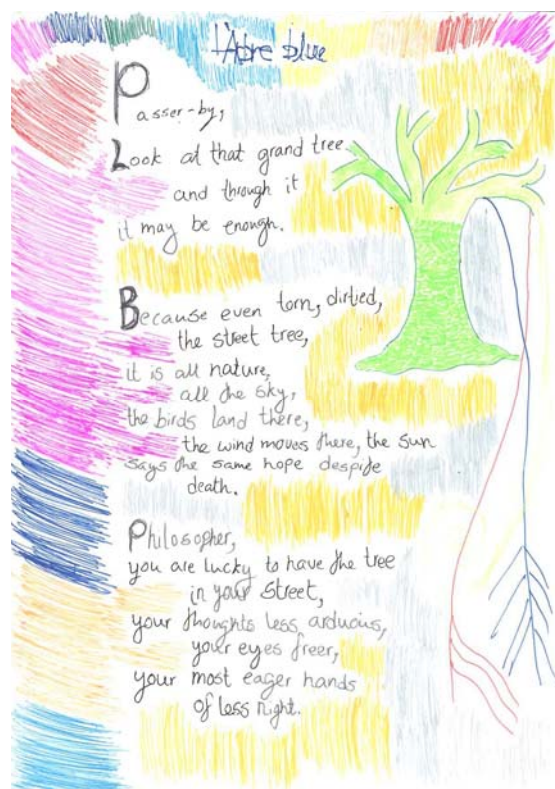 L'Abre blue
Passer-by,
Look at that grand tree
and through it
it may be enough.
Because even torn, dirtied,
the street tree,
it is all nature,
all the sky,
the birds land there,
the wind moves there, the sun
says the same hope despite
death.
Philosopher,
you are lucky to have the tree
in your street,
your thoughts less arduous,
your eyes freer,
your most eager hands
of less night.